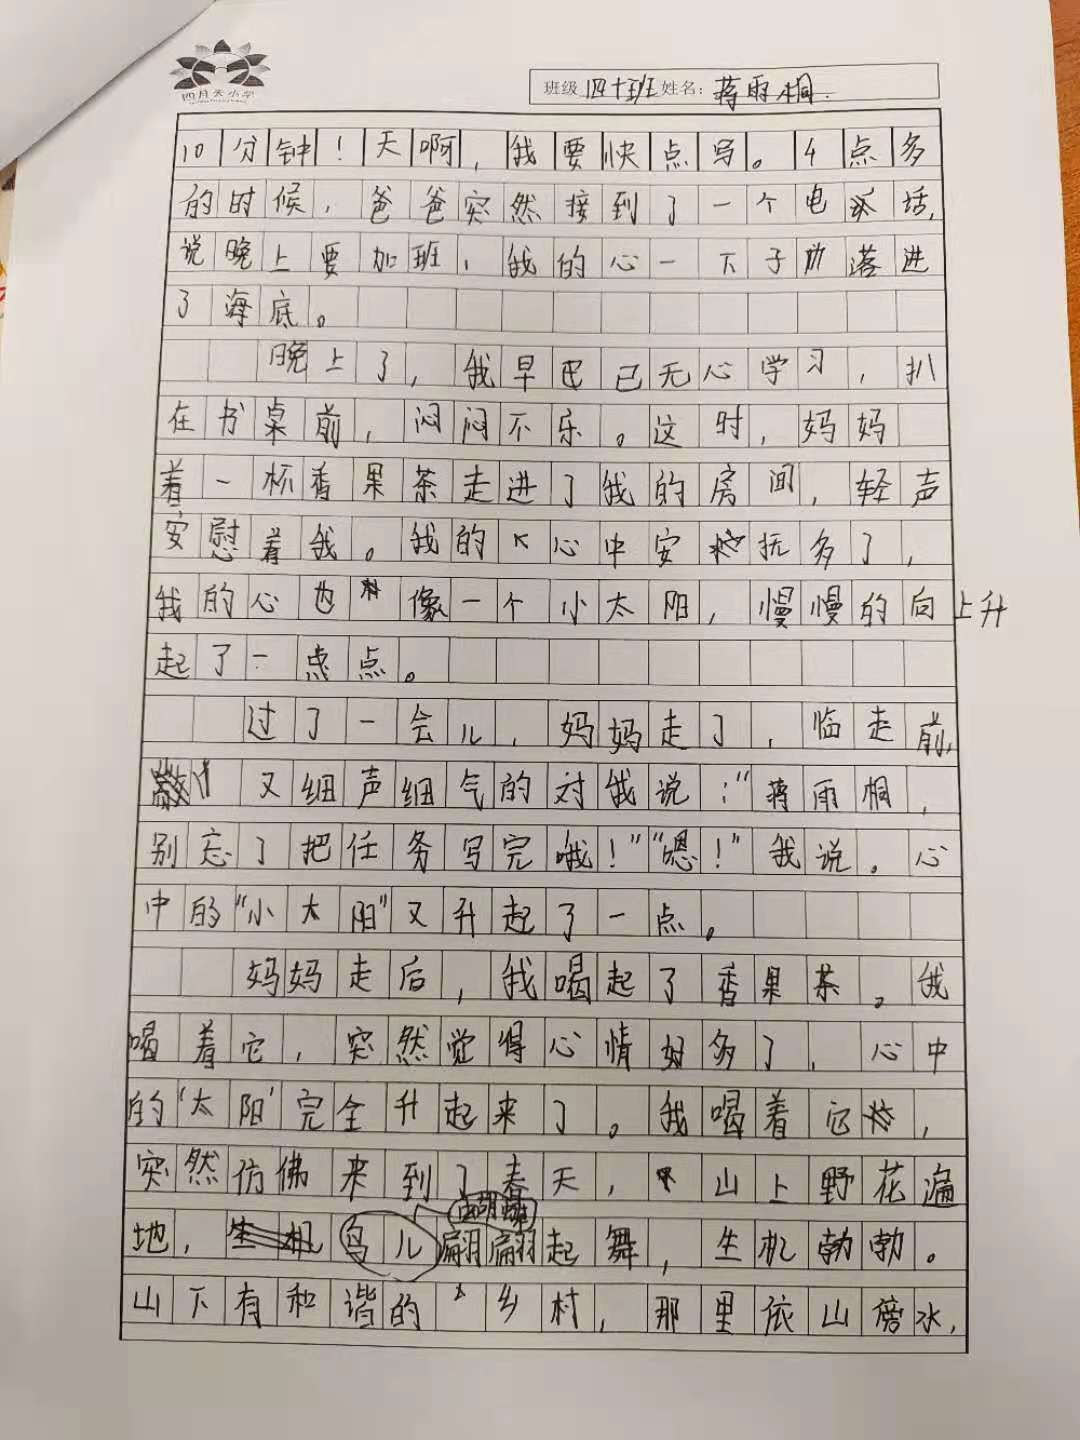 四月天小学
班级 四十班 姓名：蒋雨桐
10分钟！天啊，我要快点写。4点多
的时候，爸爸突然接到了一个电话，
说晚上要加班，我的心一下子落进
了海底。
晚上了，我早已无心学习，扒
在书桌前，闷闷不乐。这时，妈妈
着一杯香果茶走进了我的房间，轻声
安慰着我。我的心中安抚多了，
我的心也像一个小太阳，慢慢的向上升
起了一点点。
过了一会儿，妈妈走了，临走前，
又细声细气的对我说："蒋雨桐，
别忘了把任务写完哦！""嗯！"我说。心
中的"小太阳"又升起了一点。
妈妈走后，我喝起了香果茶。我
喝着它，突然觉得心情好多了，心中
的'太阳'完全升起来了。我喝着它，
突然仿佛来到了春天，山上野花遍
地，蝴蝶翩翩起舞，生机勃勃。
鸟儿
山下有和谐的乡村，那里依山傍水，